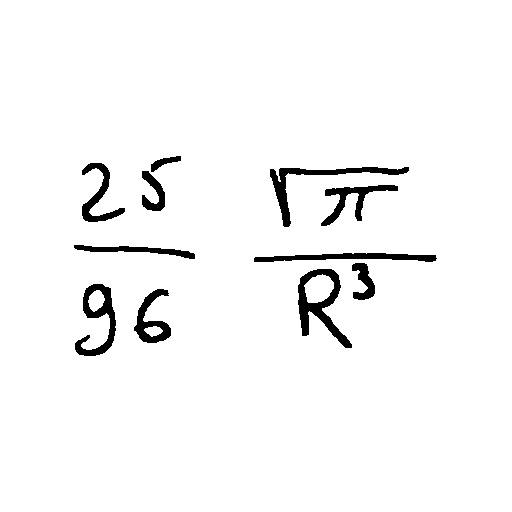 \frac{25}{96} \frac{\sqrt{\pi}}{R^3}